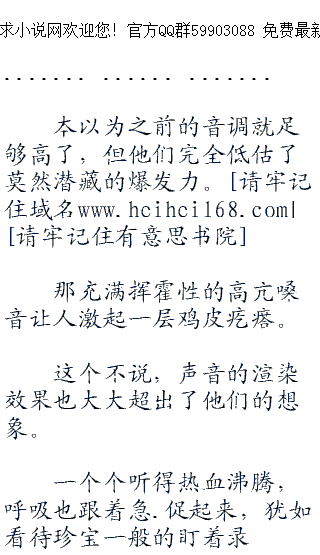 求小说网欢迎您! 官方QQ群59903088 免费最新
....... ...... .......
本以为之前的音调就足
够高了，但他们完全低估了
莫然潜藏的爆发力。[请牢记
住域名www.hcihcil68.com|
[请牢记住有意思书院]
那充满挥霍性的高亢嗓
音让人激起一层鸡皮疙瘩。
这个不说，声音的渲染
效果也大大超出了他们的想
象。
一个个听得热血沸腾，
呼吸也跟着急.促起来，犹如
看待珍宝一般的盯着录